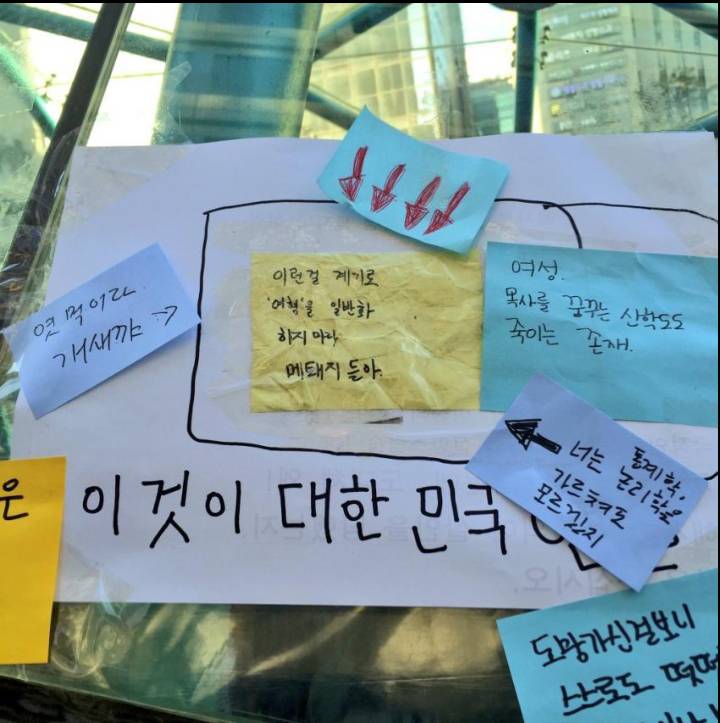 이런걸 계기로
'여혐'을 일반화
하지 마라
메퇘지 들아.
여성.
목사를 꿈꾸는 신학도도
죽이는 존재.
엿 먹이라
개새끼야 →
너는 통계학,
논리학은
가르쳐도
모르겠지
은
이것이 대한민국
도망가신걸보니
스로도 떳떳